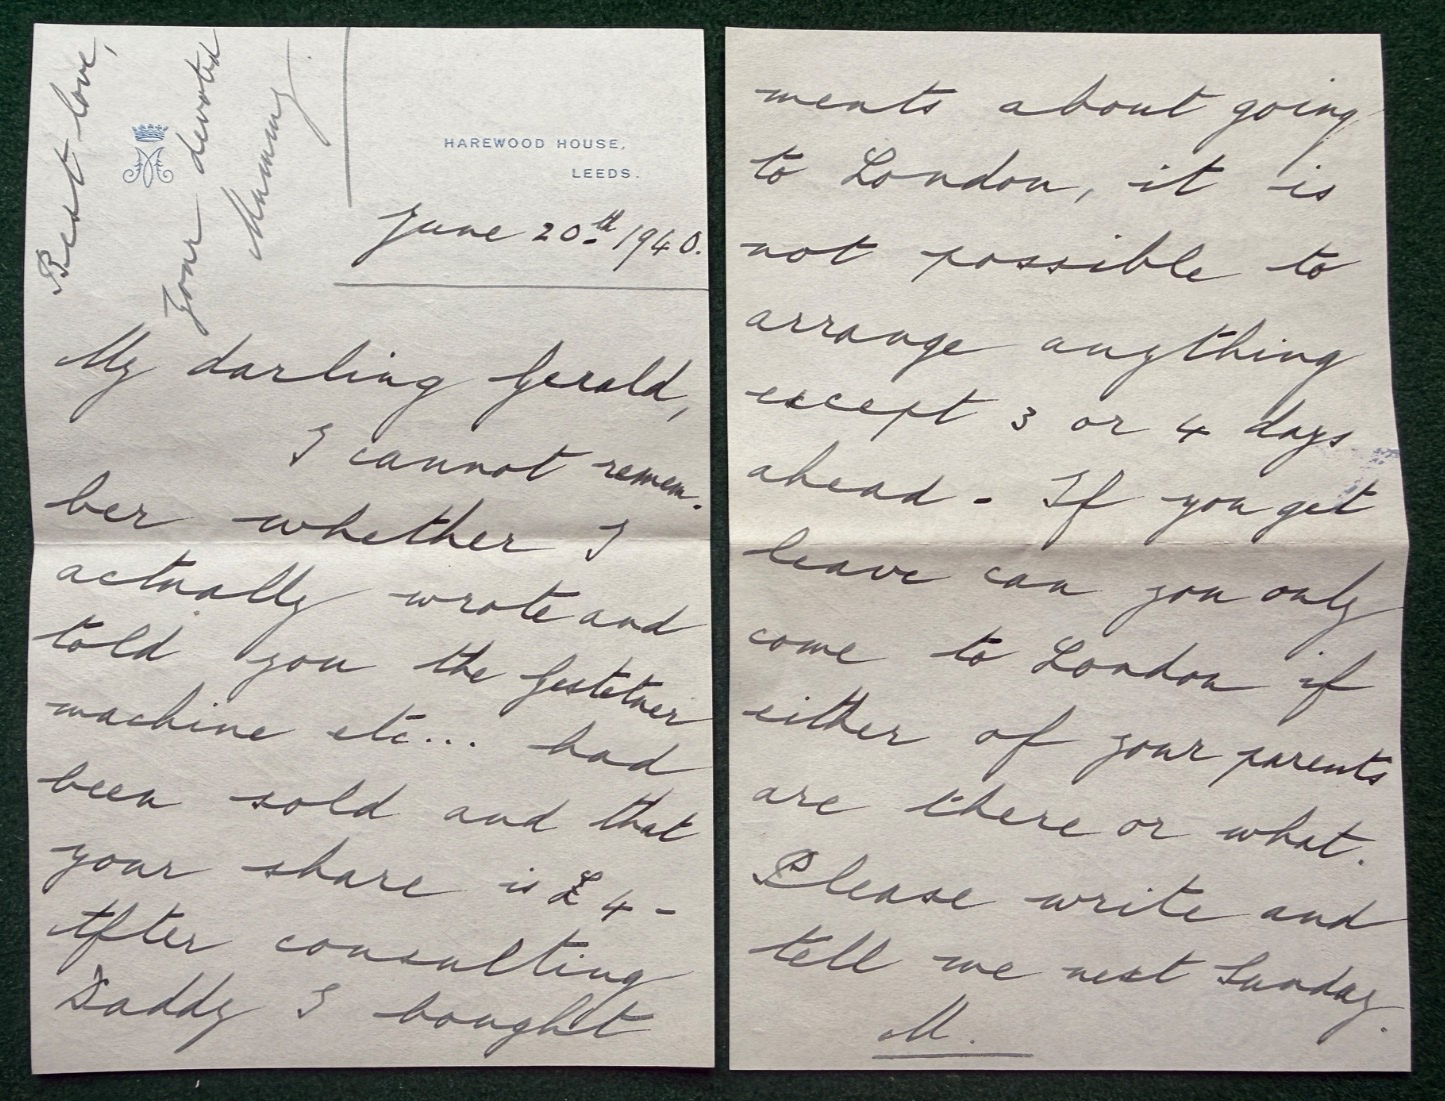 Best love,
your devoted
Mummy.
HAREWOOD HOUSE,
LEEDS.
June 20th 1940.
My darling Gerald,
I cannot remem-
ber whether I
actually wrote and
told you the Gestetner
machine etc... had
been sold and that
your share is £4 -
After consulting
Daddy I bought
ments about going
to London, it is
not possible to
arrange anything
except 3 or 4 days
ahead - If you get
leave can you only
come to London if
either of your parents
are there or what.
Please write and
tell me next Sunday.
M.